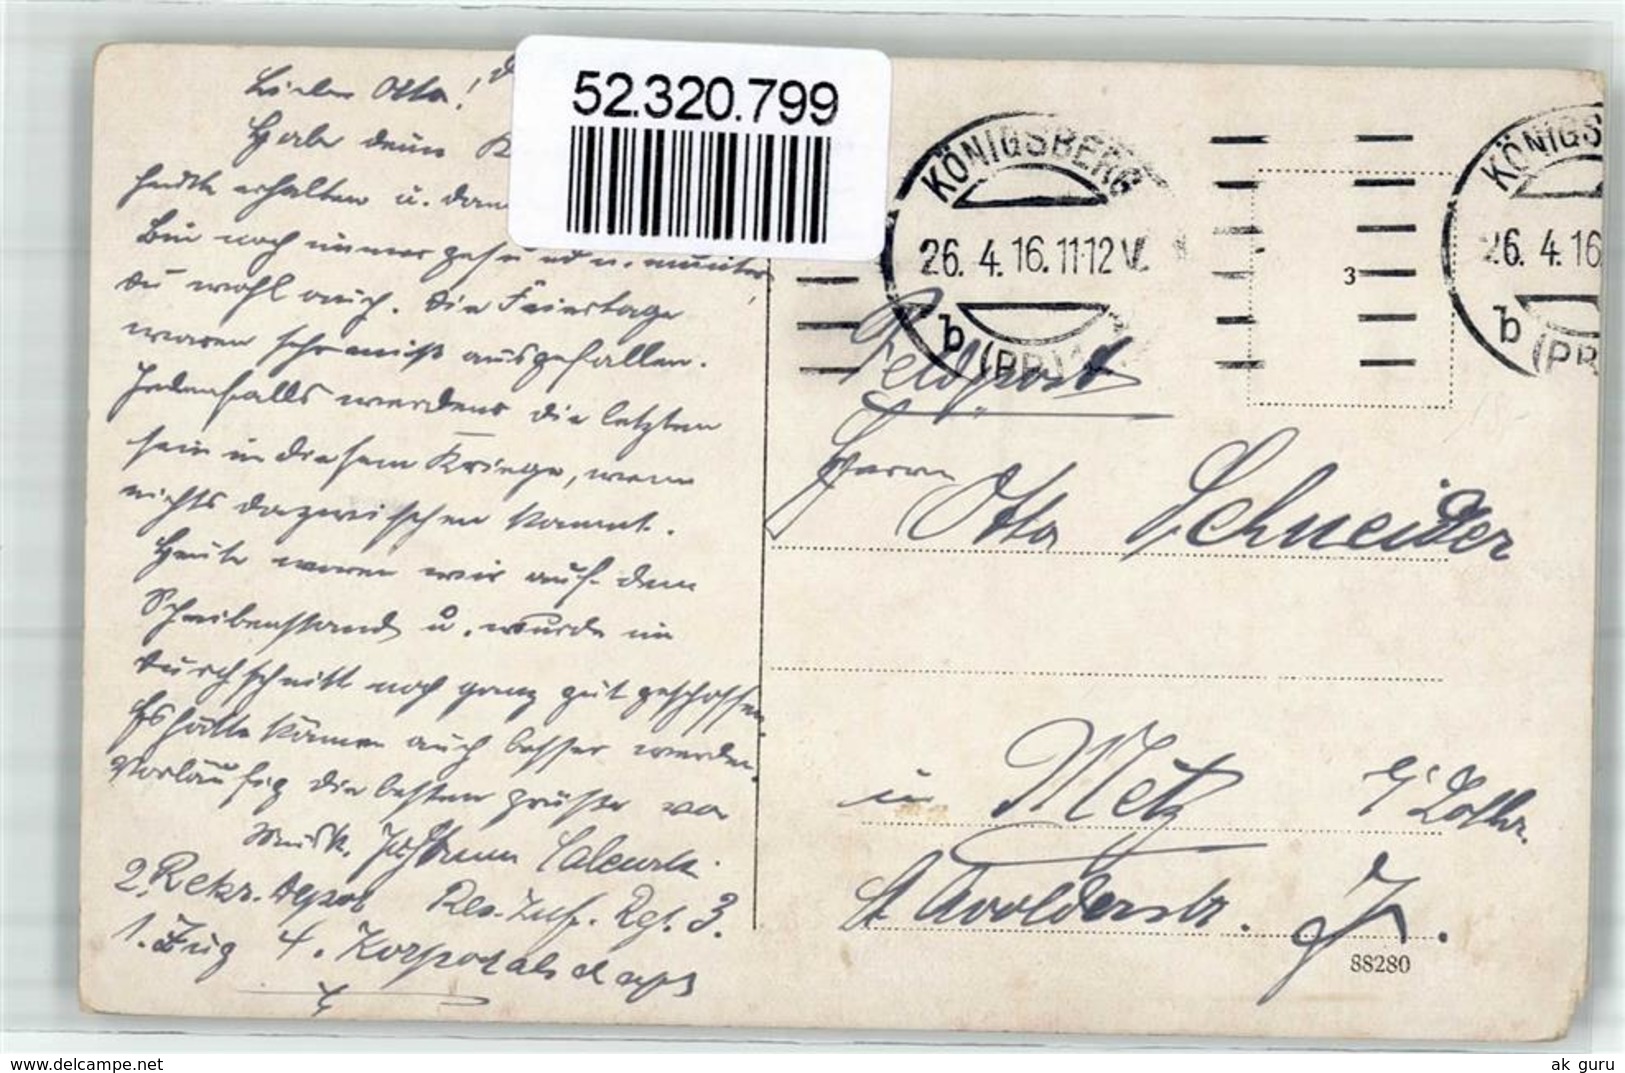 Lieber Otto!
Habe deine K
heute erhalten u. dan
Bin noch immer gesund u. munter
du wohl auch. Die Feiertage
waren sehr mieß ausgefallen.
Jedenfalls werdens die letzten
sein in diesem Kriege, wenn
nichts dazwischen kommt.
Heute waren wir auf dem
Scheibenstand u. wurde im
Durchschnitt noch ganz gut geschossen.
Es hätte können auch besser werden.
Vorläufig die besten Grüße von
Musk.
2. Rekr. Depot Res. Inf. Regt. 3.
1. Zug 4. Korporalschaft
52.320.799
KÖNIGSBERG
26. 4. 16. 11-12 V.
b (PR)
KÖNIGS
26. 4. 16
b (PR
3
Feldpost
Herrn Otto Schneider
in Metz i/ Lothr.
St. Avolderstr. 7.
88280
delcampe.net
ak_guru